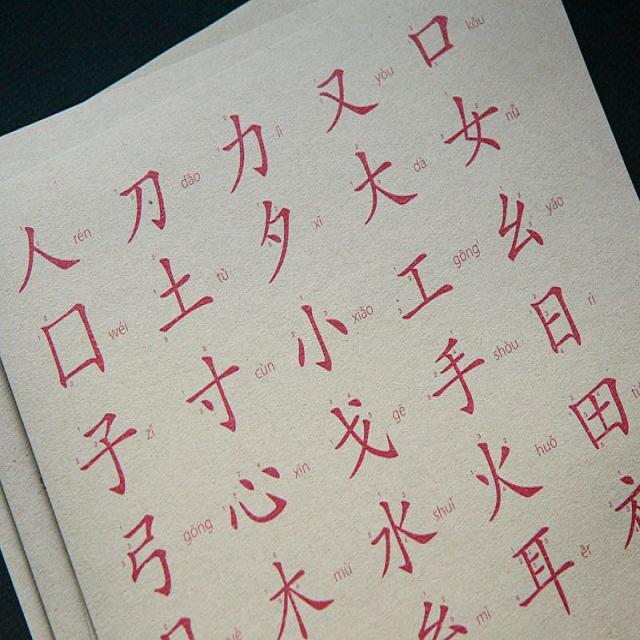 人 rén 刀 dāo 力 lì 又 yòu 口 kǒu
囗 wéi 土 tǔ 夕 xī 大 dà 女 nǚ
子 zǐ 寸 cùn 小 xiǎo 工 gōng 幺 yāo
弓 gōng 心 xīn 戈 gē 手 shǒu 日 rì
木 mù 水 shuǐ 火 huǒ 田
mǐ 耳 ěr